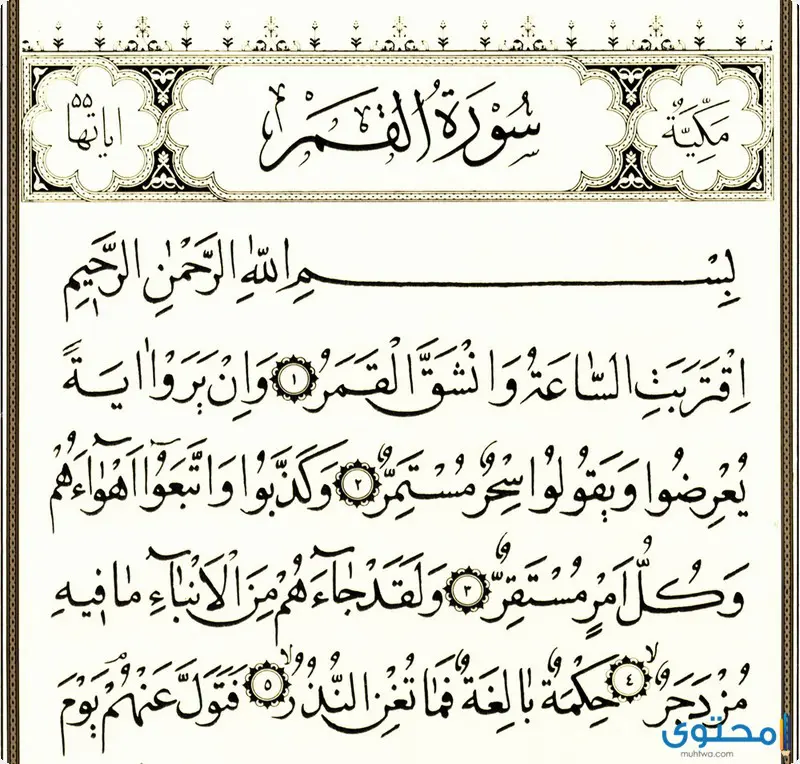 مَكِّيَّةٌ
سُورَةُ الْقَمَرِ
اياتها ٥٥
بِسْمِ اللّٰهِ الرَّحْمٰنِ الرَّحِيمِ
اِقْتَرَبَتِ السَّاعَةُ وَانْشَقَّ الْقَمَرُ ١ وَاِنْ يَرَوْا اٰيَةً
يُعْرِضُوا وَيَقُولُوا سِحْرٌ مُسْتَمِرٌّ ٢ وَكَذَّبُوا وَاتَّبَعُٓوا اَهْوَٓاءَهُمْ
وَكُلُّ اَمْرٍ مُسْتَقِرٌّ ٣ وَلَقَدْ جَٓاءَهُمْ مِنَ الْاَنْبَٓاءِ مَا فِيهِ
مُزْدَجَرٌ ٤ۙ حِكْمَةٌ بَالِغَةٌ فَمَا تُغْنِ النُّذُرُ ٥ۙ فَتَوَلَّ عَنْهُمْۢ يَوْمَ
محتوى
muhtwa.com